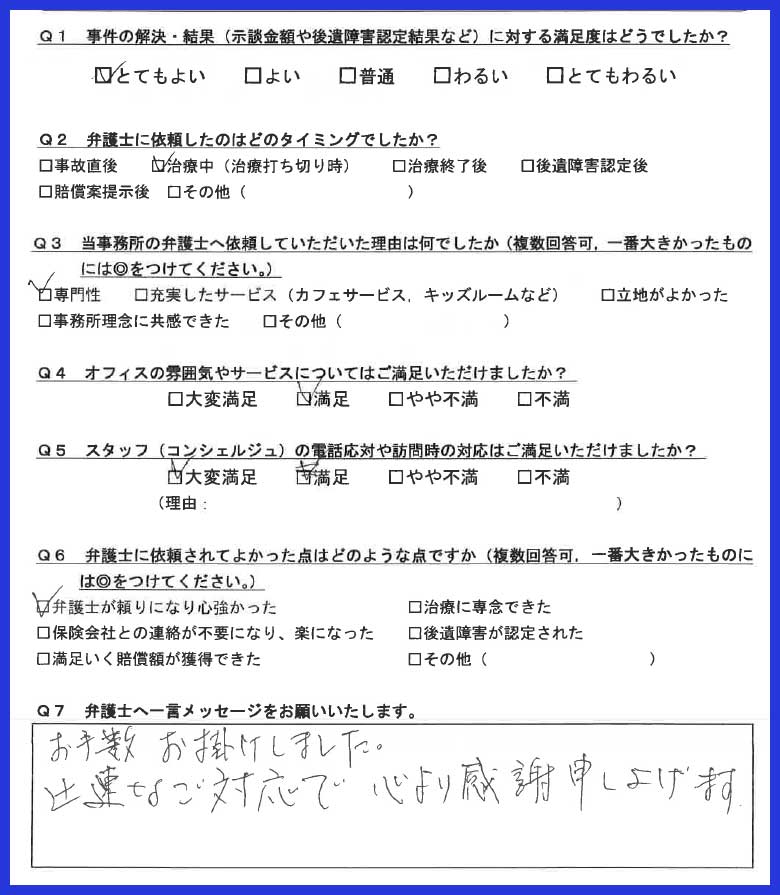 Q1 事件の解決・結果（示談金額や後遺障害認定結果など）に対する満足度はどうでしたか？
☑とてもよい □よい □普通 □わるい □とてもわるい
Q2 弁護士に依頼したのはどのタイミングでしたか？
□事故直後 ☑治療中（治療打ち切り時） □治療終了後 □後遺障害認定後
□賠償案提示後 □その他（ ）
Q3 当事務所の弁護士へ依頼していただいた理由は何でしたか（複数回答可，一番大きかったもの
には◎をつけてください。）
☑専門性 □充実したサービス（カフェサービス，キッズルームなど） □立地がよかった
□事務所理念に共感できた □その他（ ）
Q4 オフィスの雰囲気やサービスについてはご満足いただけましたか？
□大変満足 ☑満足 □やや不満 □不満
Q5 スタッフ（コンシェルジュ）の電話応対や訪問時の対応はご満足いただけましたか？
☑大変満足 □満足 □やや不満 □不満
（理由： ）
Q6 弁護士に依頼されてよかった点はどのような点ですか（複数回答可，一番大きかったものに
は◎をつけてください。）
☑弁護士が頼りになり心強かった □治療に専念できた
□保険会社との連絡が不要になり、楽になった □後遺障害が認定された
□満足いく賠償額が獲得できた □その他（ ）
Q7 弁護士へ一言メッセージをお願いいたします。
お手数 お掛けしました。
迅速なご対応で 心より感謝申し上げます